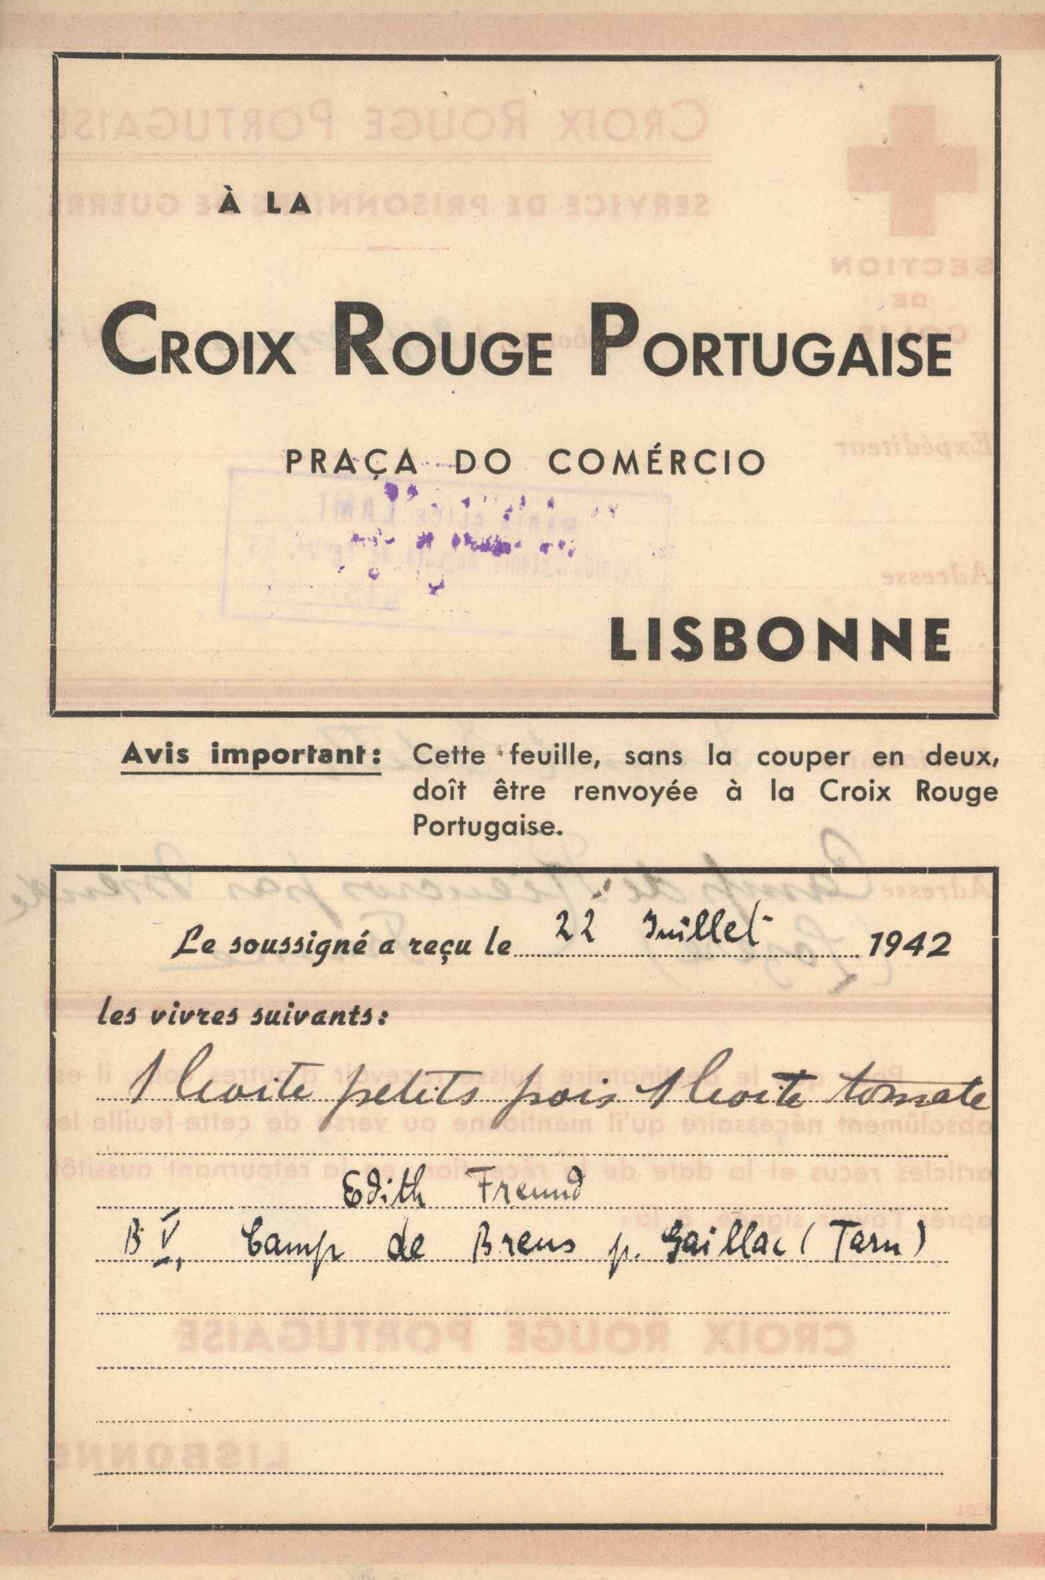 À LA
CROIX ROUGE PORTUGAISE
PRAÇA DO COMÉRCIO
LISBONNE
Avis important: Cette feuille, sans la couper en deux,
doît être renvoyée à la Croix Rouge
Portugaise.
Le soussigné a reçu le 22 Juillet 1942
les vivres suivants:
1 boite petits pois 1 boite tomate
Edith Freund
B V, Camp de Brens p. Gaillac (Tarn)